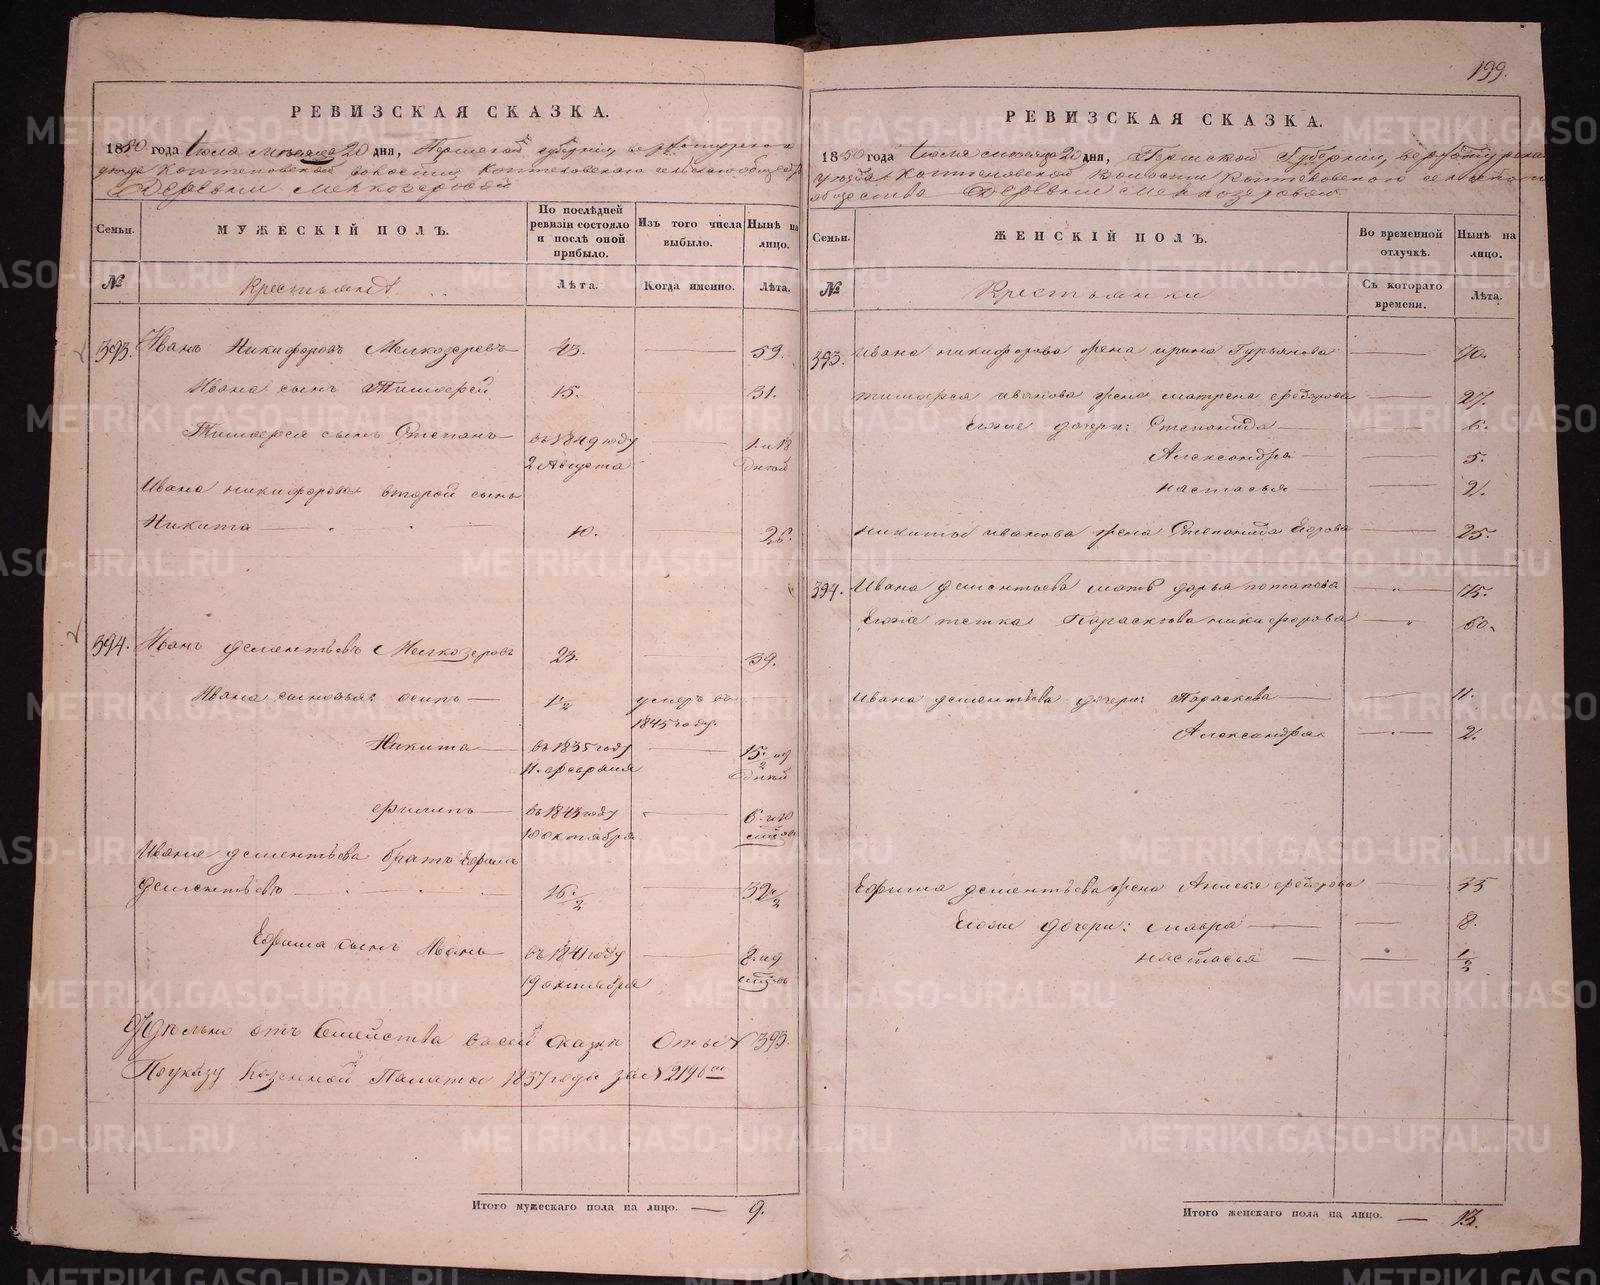 199.
РЕВИЗСКАЯ СКАЗКА.
1850 года Июля месяца 20 дня, Пермской губернии, верхотурского
уезда Коптеловской волости, Коптеловского сельского общества
Деревни Мелкозеровой
Семьи.
МУЖЕСКІЙ ПОЛЪ.
По послѣдней ревизіи состояло и послѣ оной прибыло.
Изъ того числа выбыло.
Нынѣ на лицо.
№
Крестьяне
Лѣта.
Когда именно.
Лѣта.
393. Иванъ Никифоровъ Мелкозеровъ 43. 59.
Ивана сынъ Тимофей 15. 31.
Тимофея сынъ Степанъ въ 1849 году
2 Августа
дней
Ивана никифорова второй сынъ
Никита 10. 26.
394. Иванъ дементьевъ Мелкозеровъ 23. 39.
Ивана сыновья: осипъ 1/2 умеръ въ
1845 году.
Никита въ 1835 году
11. февраля
дней
филипъ въ 1843 году
10 октября
Ивана дементьева братъ Ефимъ
дементьевъ 16 1/2 32 1/2
Ефима сынъ Иванъ въ 1841 году
19 октября
отъ Семейства въ сей сказки № 393.
По указу Казенной Палаты 1837 года за № 2196
Итого мужескаго пола на лицо. — 9.
РЕВИЗСКАЯ СКАЗКА.
1850 года Июля месяца 20 дня, Пермской Губернии, верхотурскаго
уезда Коптеловской волости Коптеловского сельского
общества Деревни Мелкозеровой.
Семьи.
ЖЕНСКІЙ ПОЛЪ.
Во временной отлучкѣ.
Нынѣ на лицо.
№
Крестьянки
Съ котораго времени.
Лѣта.
393. Ивана никифорова жена ирина Гурьянова 70.
тимофея иванова жена матрена федорова 27.
Егоже дочери: Степанида 6.
Александра 5.
настасья 2.
никиты иванова жена Степанида Егорова 25.
394. Ивана дементьева мать дарья потапова 75.
Егоже тетка Параскева никифорова 60.
ивана дементьева дочери: Параскева 11.
Александра 2.
Ефима дементьева жена Анисья федорова 35
Егоже дочери: мавра 8.
настасья 1/2
Итого женскаго пола на лицо. — 13.
METRIKI.GASO-URAL.RU